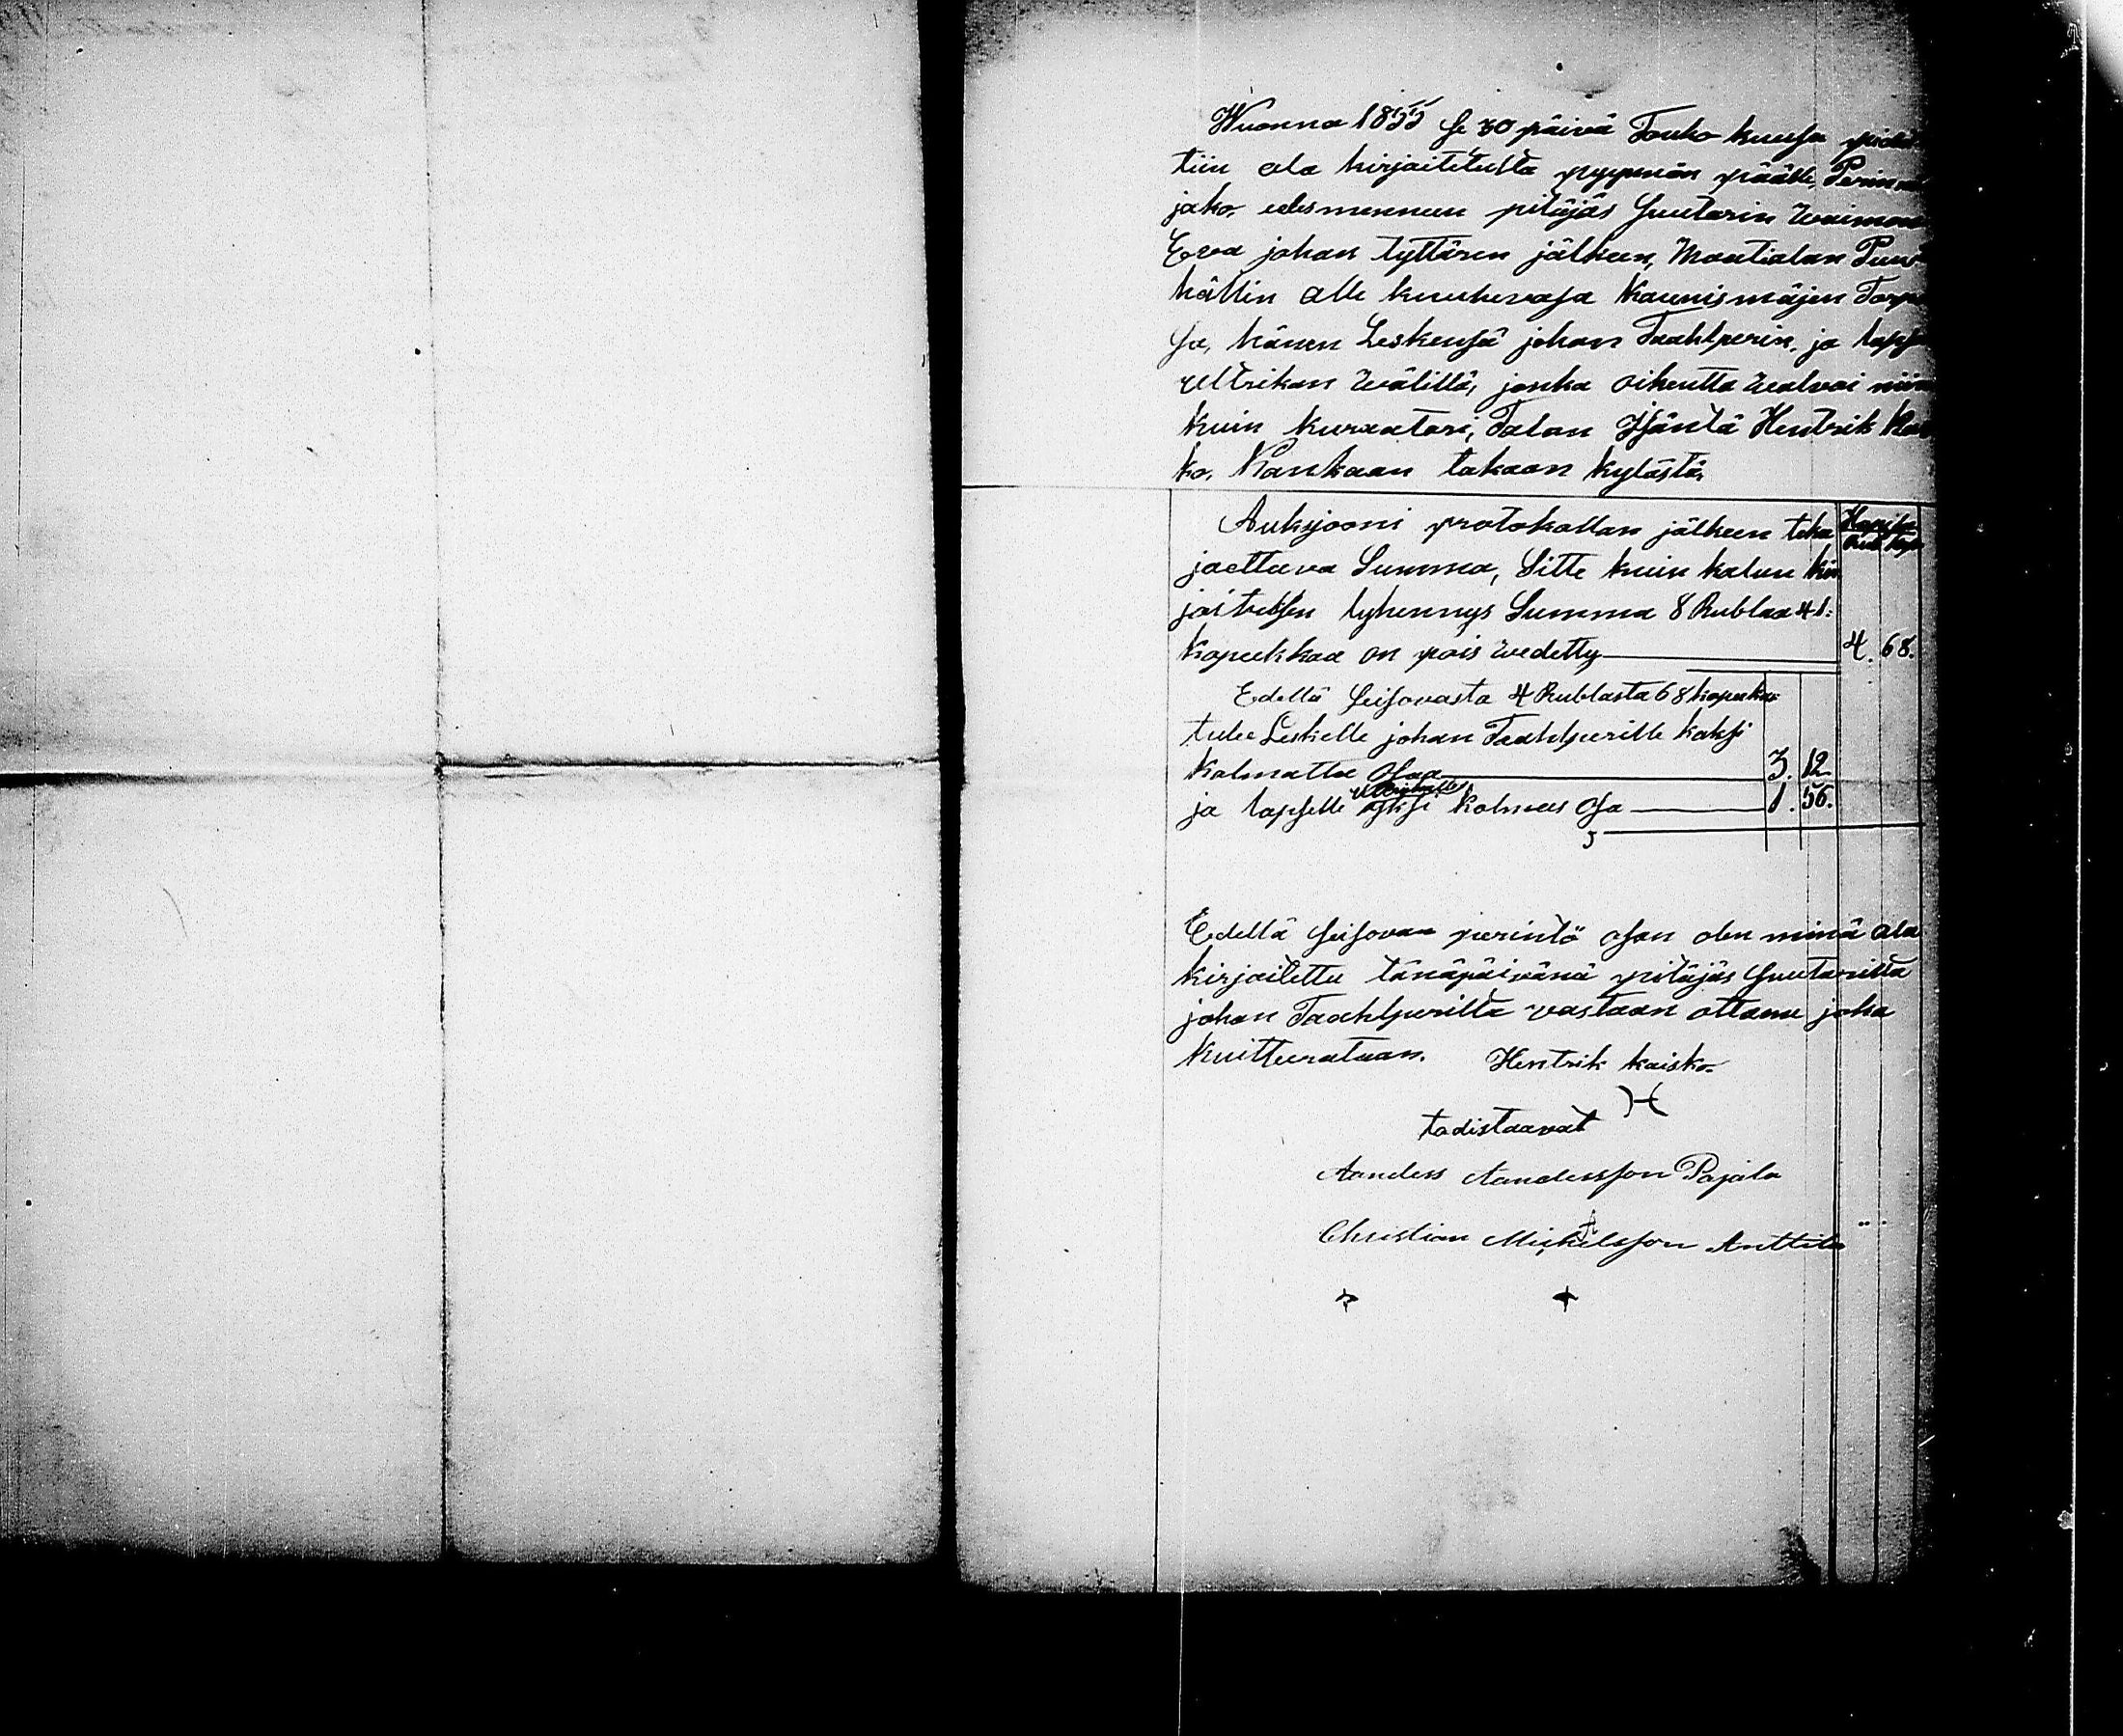 Wuonna 1855 se 30 päivä Touko kuusa pidet
tiin ala kirjoitetulta pyynnön päälle, Perinnö
jako, edesmenneen pitäjäs Suutarin Waimon
Eva johan tyttären jälkeen, Moatialan Puu
hållin alle kuuluvasa Kaunismäjen Torpa
sa, hänen Leskensä johan Taahlperin, ja lapse
Ulrikan Wälillä, jonka oikeutta Walvoi niin
kuin kuraatori, Talon Isäntä Hentrik Kais
ko, Kankaan takaan kylästä,
Auksjooni protokollan jälkeen teke
jaettava Summa, Sitte kuin kalun kir
joituksen lyhennys Summa 8 Rublaa 41:
kopeekkaa on pois wedetty 4. 68.
Edellä seisovasta 4 Rublasta 68 kopeka:
tulee Leskelle johan Taahlperille kaksi
kolmatta osaa 3. 12
Ulrikalle
ja lapselle yksi kolmas osa 1. 56.
Edellä seisovan perintö osan olen minä ala
kirjoitettu tänäpäivänä pitäjäs Suutarilta
johan Taahlperilta vastaan ottanu joka
kuitterataan. Hentrik kaisko.
todistaavat
Aanders Aanderssson Pajala
Christian Mickelsson Anttila